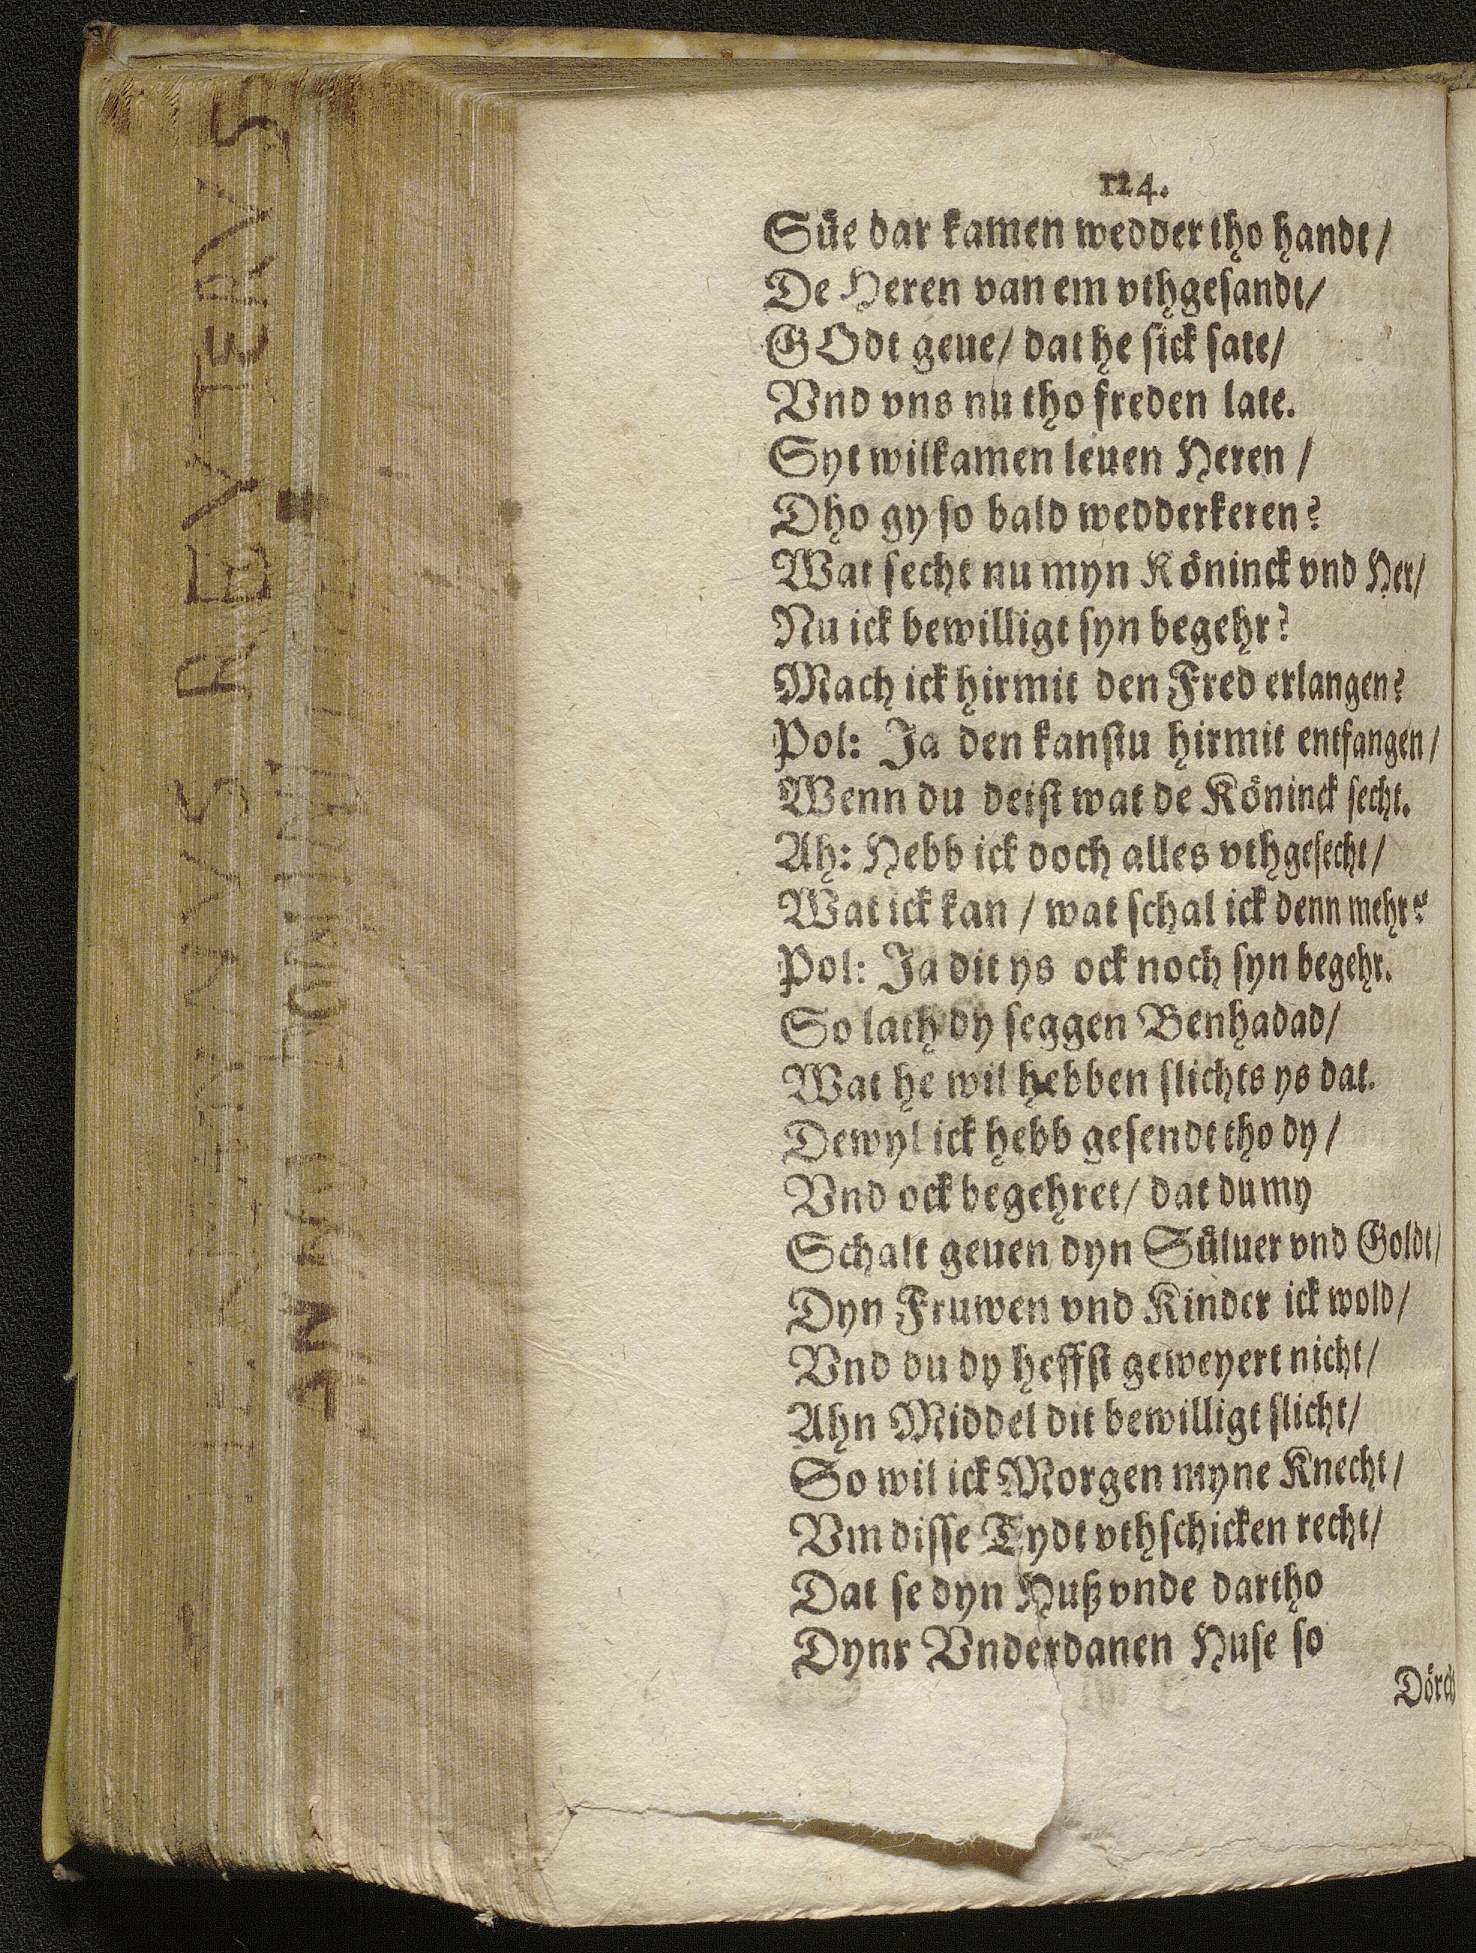 124.
Süe dar kamen wedder tho handt /
De Heren van em vthgesandt /
GOdt geue / dat he sick sate /
Vnd vns nu tho freden late.
Syt wilkamen leuen Heren /
Dho gy so bald wedderkeren?
Wat secht nu myn Köninck vnd Her /
Nu ick bewilligt syn begehr?
Mach ick hirmit den Fred erlangen?
Pol: Ja den kanstu hirmit entfangen /
Wenn du deist wat de Köninck secht.
Ah: Hebb ick doch alles vthgesecht /
Wat ick kan / wat schal ick denn mehr?
Pol: Ja dit ys ock noch syn begehr.
So lath dy seggen Benhadad /
Wat he wil hebben slichts ys dat.
Dewyl ick hebb gesendt tho dy /
Vnd ock begehret / dat du my
Schalt geuen dyn Süluer vnd Goldt /
Dyn Fruwen vnd Kinder ick wold /
Vnd du dy heffst geweyert nicht /
Ahn Middel dit bewilligt slicht /
So wil ick Morgen myne Knecht /
Vm disse Tydt vthschicken recht /
Dat se dyn Huß vnde dartho
Dynr Vnderdanen Huse so
Dörch
REYTERVS